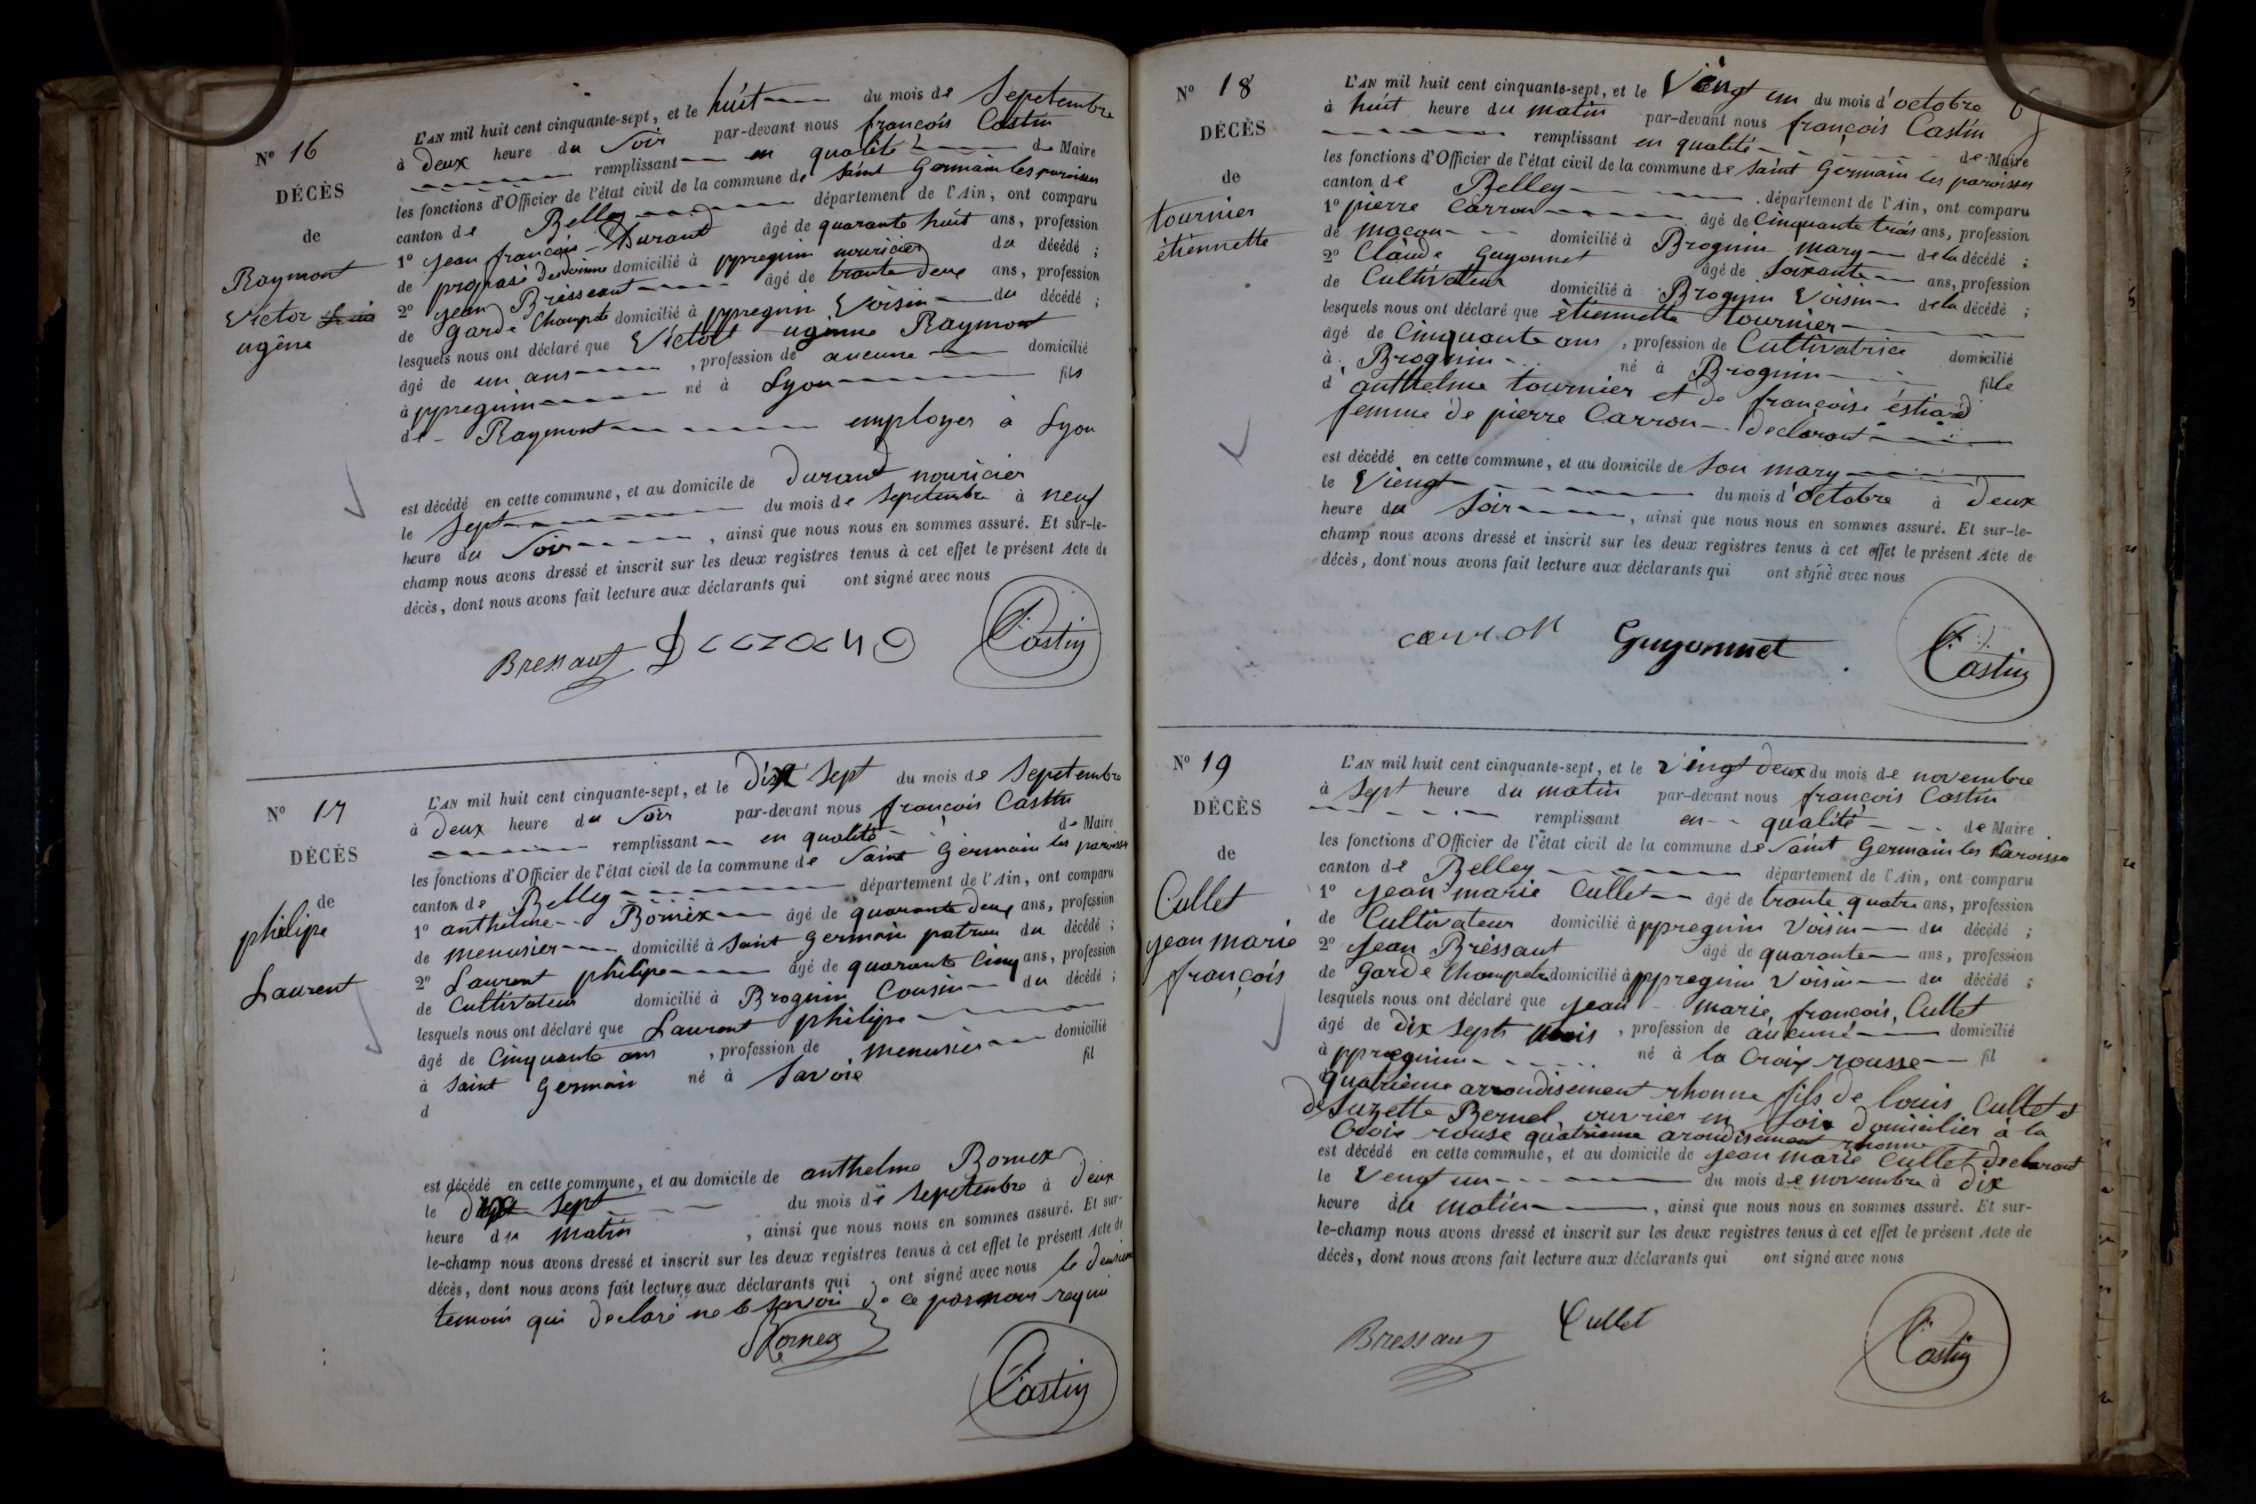 N° 16
DÉCÈS
de
Raymont
Victor
ugène
L'AN mil huit cent cinquante-sept, et le huit du mois de Sepetembre
à deux heure du Soir par-devant nous françois Castin
remplissant en qualité de Maire
les fonctions d'Officier de l'état civil de la commune de Saint Germain les paroisses
canton de Belley département de l'Ain, ont comparu
1° jean françois Durand âgé de quarante huit ans, profession
de domicilié à ppregnin nouricier du décédé ;
2° jean Brissaut âgé de trante deux ans, profession
de garde Champete domicilié à ppregnin Voisin du décédé ;
lesquels nous ont déclaré que Victor ugenne Raymont
âgé de un ans , profession de aucune domicilié
à ppregnin né à Lyon fils
de Raymont employer à Lyon
est décédé en cette commune, et au domicile de durand nouricier
le sept du mois de Sepetembre à neuf
heure du Soir , ainsi que nous nous en sommes assuré. Et sur-le-
champ nous avons dressé et inscrit sur les deux registres tenus à cet effet le présent Acte de
décès, dont nous avons fait lecture aux déclarants qui ont signé avec nous
Bressaut Castin
N° 17
DÉCÈS
de
philipe
Laurent
L'AN mil huit cent cinquante-sept, et le dix sept du mois de Sepetembre
à deux heure du Soir par-devant nous françois Castin
remplissant en qualité de Maire
les fonctions d'Officier de l'état civil de la commune de Saint Germain les paroisses
canton de Belley département de l'Ain, ont comparu
1° anthelme Bornex âgé de quarante deux ans, profession
de menusier domicilié à Saint germain patron du décédé ;
2° Laurent philipe âgé de quarante Cinq ans, profession
de Cultivateur domicilié à Brognin Cousin du décédé ;
lesquels nous ont déclaré que Laurent philipe
âgé de Cinquante ans , profession de menusier domicilié
à Saint Germain né à Savoie fil
d
est décédé en cette commune, et au domicile de anthelme Bornex
le sept du mois de Sepetembre à deux
heure du matin , ainsi que nous nous en sommes assuré. Et sur-
le-champ nous avons dressé et inscrit sur les deux registres tenus à cet effet le présent Acte de
décès, dont nous avons fait lecture aux déclarants qui ont signé avec nous le
temoin qui declaré ne le savoir de ce par nous requi
Bornex
Castin
N° 18
DÉCÈS
de
tournier
étiennette
L'AN mil huit cent cinquante-sept, et le Vingt un du mois d'octobre
à huit heure du matin par-devant nous françois Castin
remplissant en qualité de Maire
les fonctions d'Officier de l'état civil de la commune de Saint Germain les paroisses
canton de Belley département de l'Ain, ont comparu
1° pierre Carron âgé de Cinquante trois ans, profession
de maçon domicilié à Brognin mary de la décédé ;
2° Claude Guyonnet âgé de Soixante ans, profession
de Cultivateur domicilié à Brognin Voisin de la décédé ;
lesquels nous ont déclaré que étiennette tournier
âgé de Cinquante ans , profession de Cultivatrice domicilié
à Brognin né à Brognin fille
d'anthelme tournier et de françoise
femme de pierre Carron declarant
est décédé en cette commune, et au domicile de Son mary
le Viengt du mois d'octobre à deux
heure du Soir , ainsi que nous nous en sommes assuré. Et sur-le-
champ nous avons dressé et inscrit sur les deux registres tenus à cet effet le présent Acte de
décès, dont nous avons fait lecture aux déclarants qui ont signé avec nous
carron Guyonnet Castin
N° 19
DÉCÈS
de
Cullet
jean marie
françois
L'AN mil huit cent cinquante-sept, et le Vingt deux du mois de novembre
à Sept heure du matin par-devant nous françois Castin
remplissant en qualité de Maire
les fonctions d'Officier de l'état civil de la commune de Saint Germain les Paroisses
canton de Belley département de l'Ain, ont comparu
1° jean marie Cullet âgé de trante quatre ans, profession
de Cultivateur domicilié à ppregnin Voisin du décédé ;
2° jean Bressaut âgé de quarante ans, profession
de garde Champete domicilié à ppregnin Voisin du décédé ;
lesquels nous ont déclaré que jean marie, françois, Cullet
âgé de dix sept mois , profession de aucune domicilié
à ppregnin né à la Croix rousse fil
quatrieme arrondisement rhonne fils de louis Cullet et
de Suzette Bernel ouvrier en Soix domicilier à la
Croix rouse quatrieme arondisement rhonne
est décédé en cette commune, et au domicile de jean marie Cullet declarant
le Vengt un du mois de novembre à dix
heure du matin , ainsi que nous nous en sommes assuré. Et sur-
le-champ nous avons dressé et inscrit sur les deux registres tenus à cet effet le présent Acte de
décès, dont nous avons fait lecture aux déclarants qui ont signé avec nous
Bressaut Cullet Castin